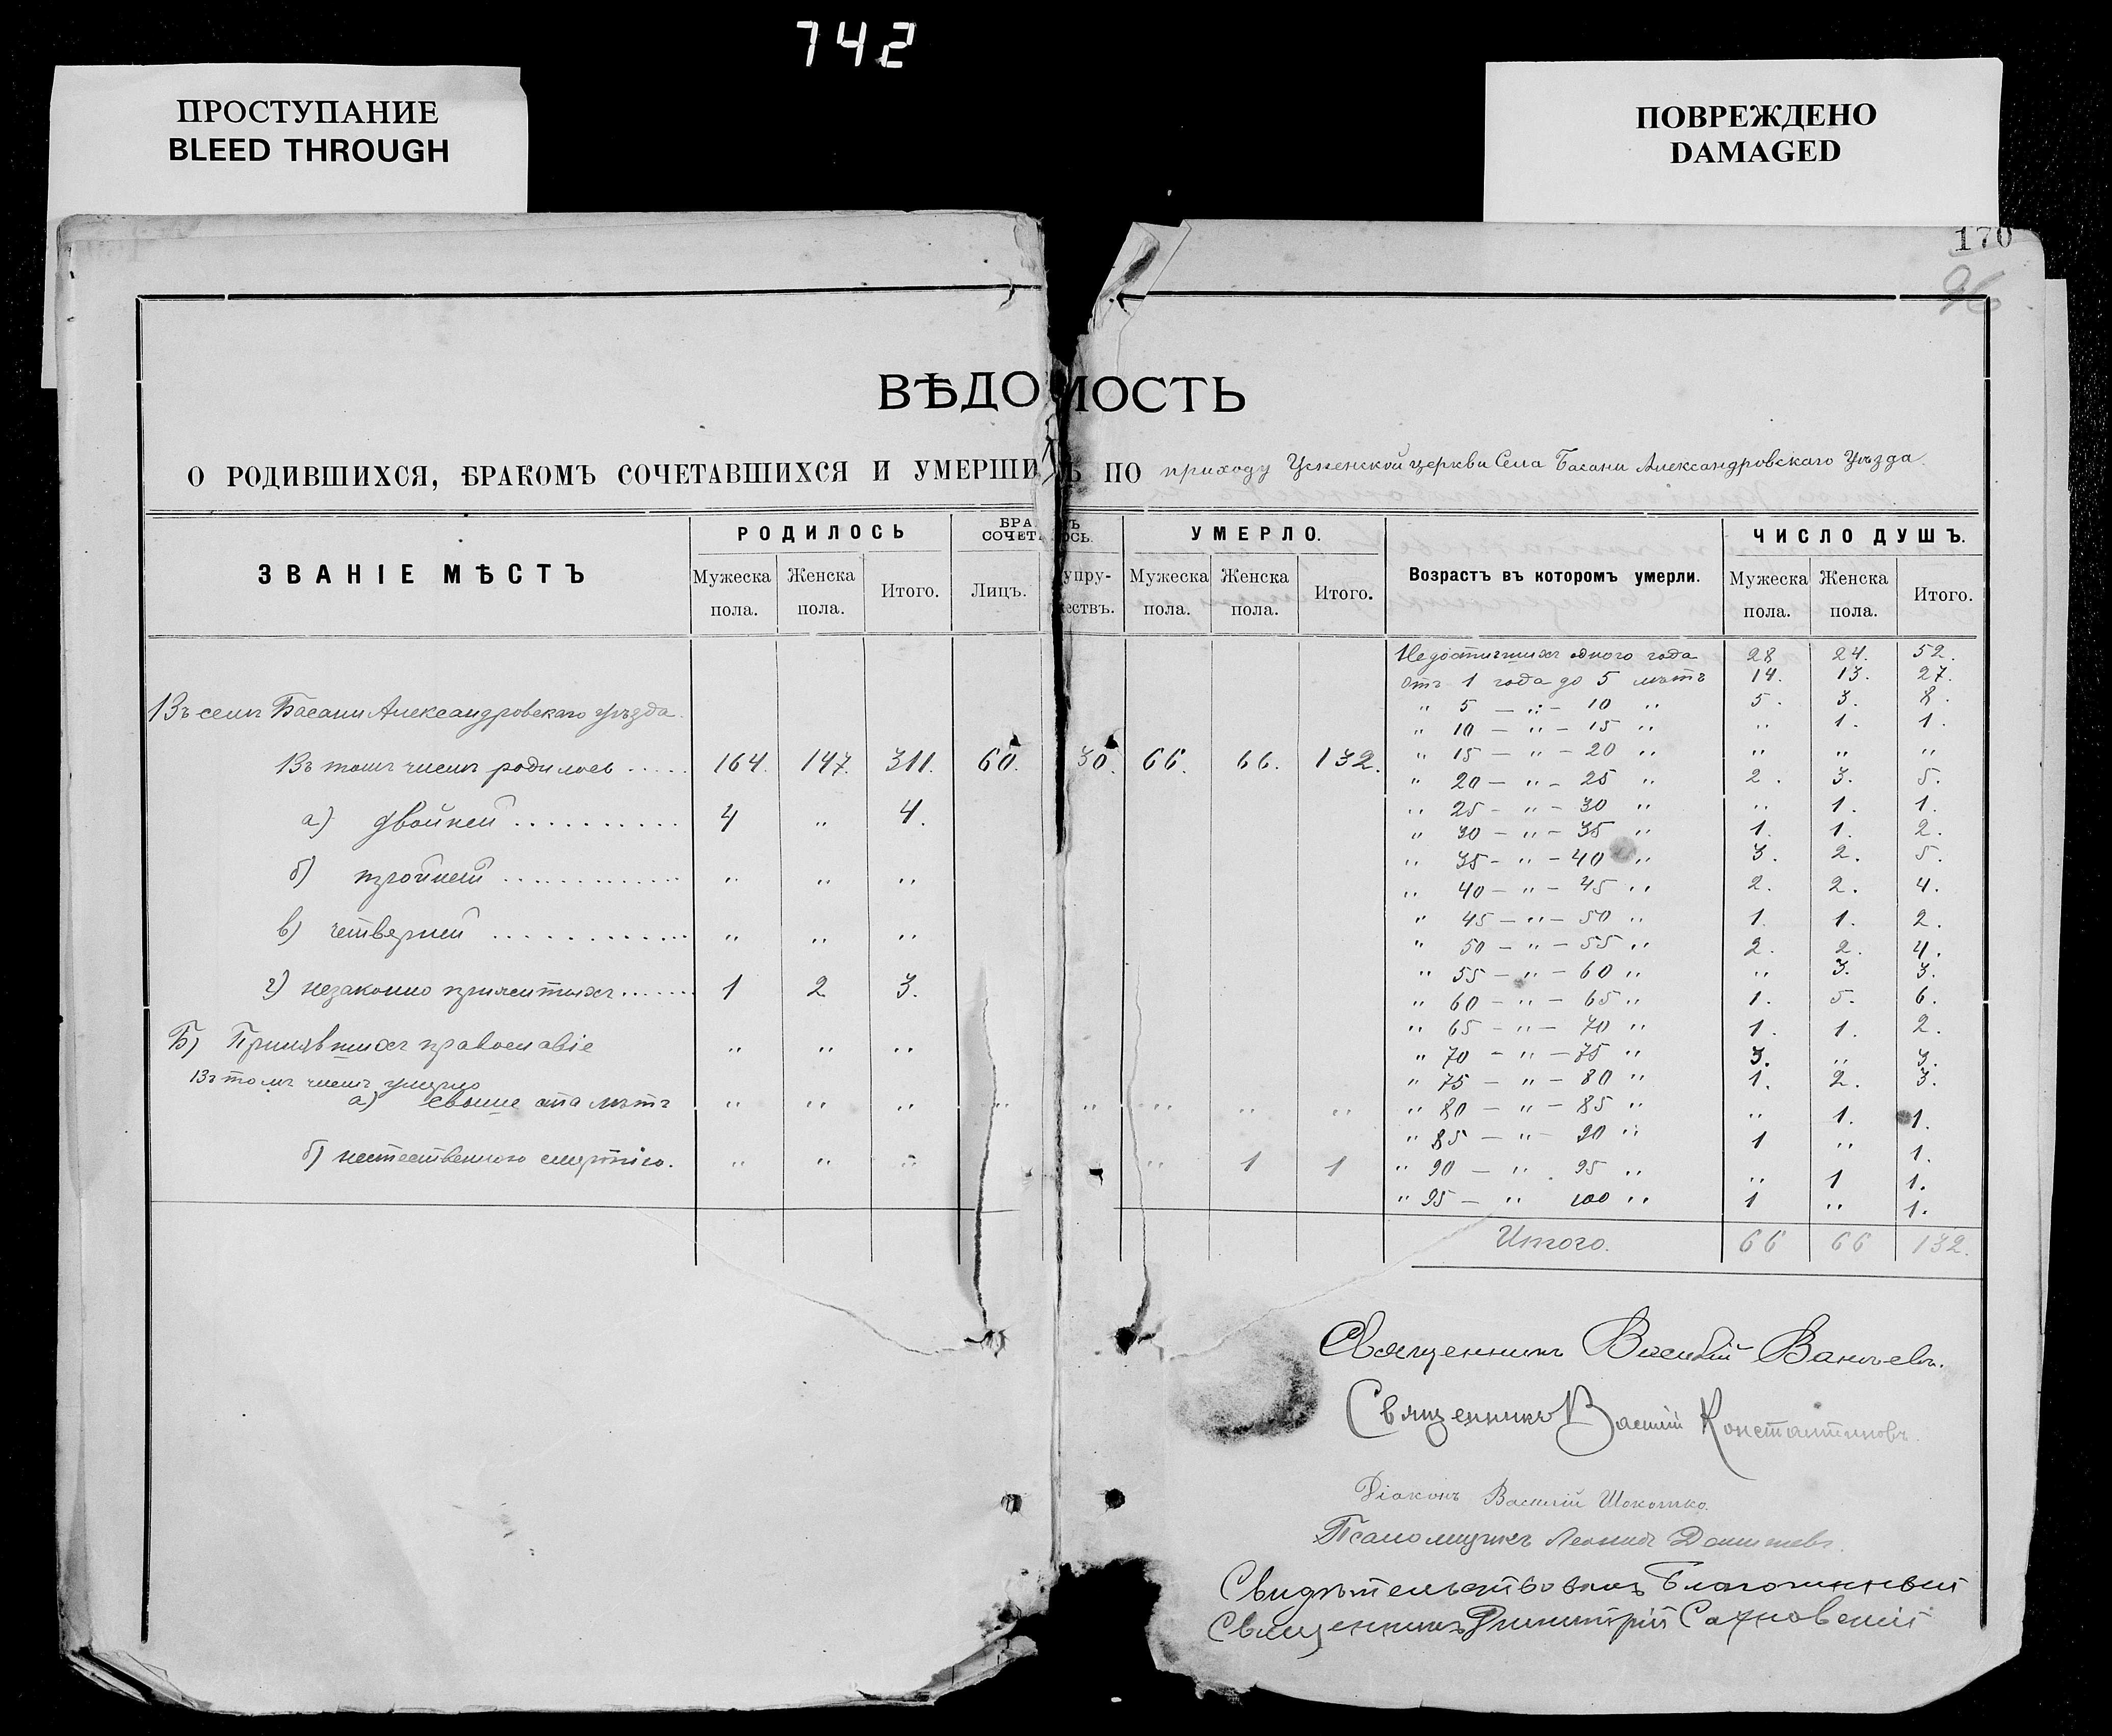 742
ПРОСТУПАНИЕ
BLEED THROUGH
ПОВРЕЖДЕНО
DAMAGED
170
96
ВѢДОМОСТЬ
О РОДИВШИХСЯ, БРАКОМЪ СОЧЕТАВШИХСЯ И УМЕРШИХЪ ПО приходу Успенской церкви Села Басани Александровскаго Уѣзда
ЗВАНІЕ МѢСТЪ
РОДИЛОСЬ
БРА Ъ
СОЧЕТ ОСЬ.
УМЕРЛО.
Возрастъ въ которомъ умерли.
ЧИСЛО ДУШЪ.
Мужеска пола. Женска пола. Итого. Лицъ. упру-жествъ. Мужеска пола. Женска пола. Итого. Мужеска пола. Женска пола. Итого.
Въ селѣ Басани Александровскаго уѣзда
Въ томъ числѣ родилось ..... 164. 147. 311. 60. 30. 66. 66. 132.
а) двойней .......... 4 „ 4.
б) тройней ............ „ „ „
в) четверней ............ „ „ „
г) незаконно прижитыхъ ...... 1 2 3.
Б) Принявшихъ православіе „ „ „
Въ томъ числѣ умерло
а) свыше ста лѣтъ „ „ „ „ „ „ „ „
б) неестественною смертію. „ „ „ „ „ 1 1
Недостигшихъ одного года 28 24. 52.
Отъ 1 года до 5 лѣтъ 14. 13. 27.
„ 5 — „ — 10 „ 5. 3. 8.
„ 10 — „ — 15 „ „ 1. 1.
„ 15 — „ — 20 „ „ „ „
„ 20 — „ — 25 „ 2. 3. 5.
„ 25 — „ — 30 „ „ 1. 1.
„ 30 — „ — 35 „ 1. 1. 2.
„ 35 — „ — 40 „ 3. 2. 5.
„ 40 — „ — 45 „ 2. 2. 4.
„ 45 — „ — 50 „ 1. 1. 2.
„ 50 — „ — 55 „ 2. 2. 4.
„ 55 — „ — 60 „ „ 3. 3.
„ 60 — „ — 65 „ 1. 5. 6.
„ 65 — „ — 70 „ 1. 1. 2.
„ 70 — „ — 75 „ 3. „ 3.
„ 75 — „ — 80 „ 1. 2. 3.
„ 80 — „ — 85 „ „ 1. 1.
„ 85 — „ — 90 „ 1 „ 1.
„ 90 — „ . 95 „ „ 1 1.
„ 95 — „ 100 „ 1 „ 1.
Итого. 66 66 132.
Священникъ Василій
Священникъ Василій Константиновъ.
Діаконъ Василій Шокотко.
Псаломщикъ Леонидъ
Свидѣтельствовалъ Благочинный
Священникъ Димитрій Сахновскій